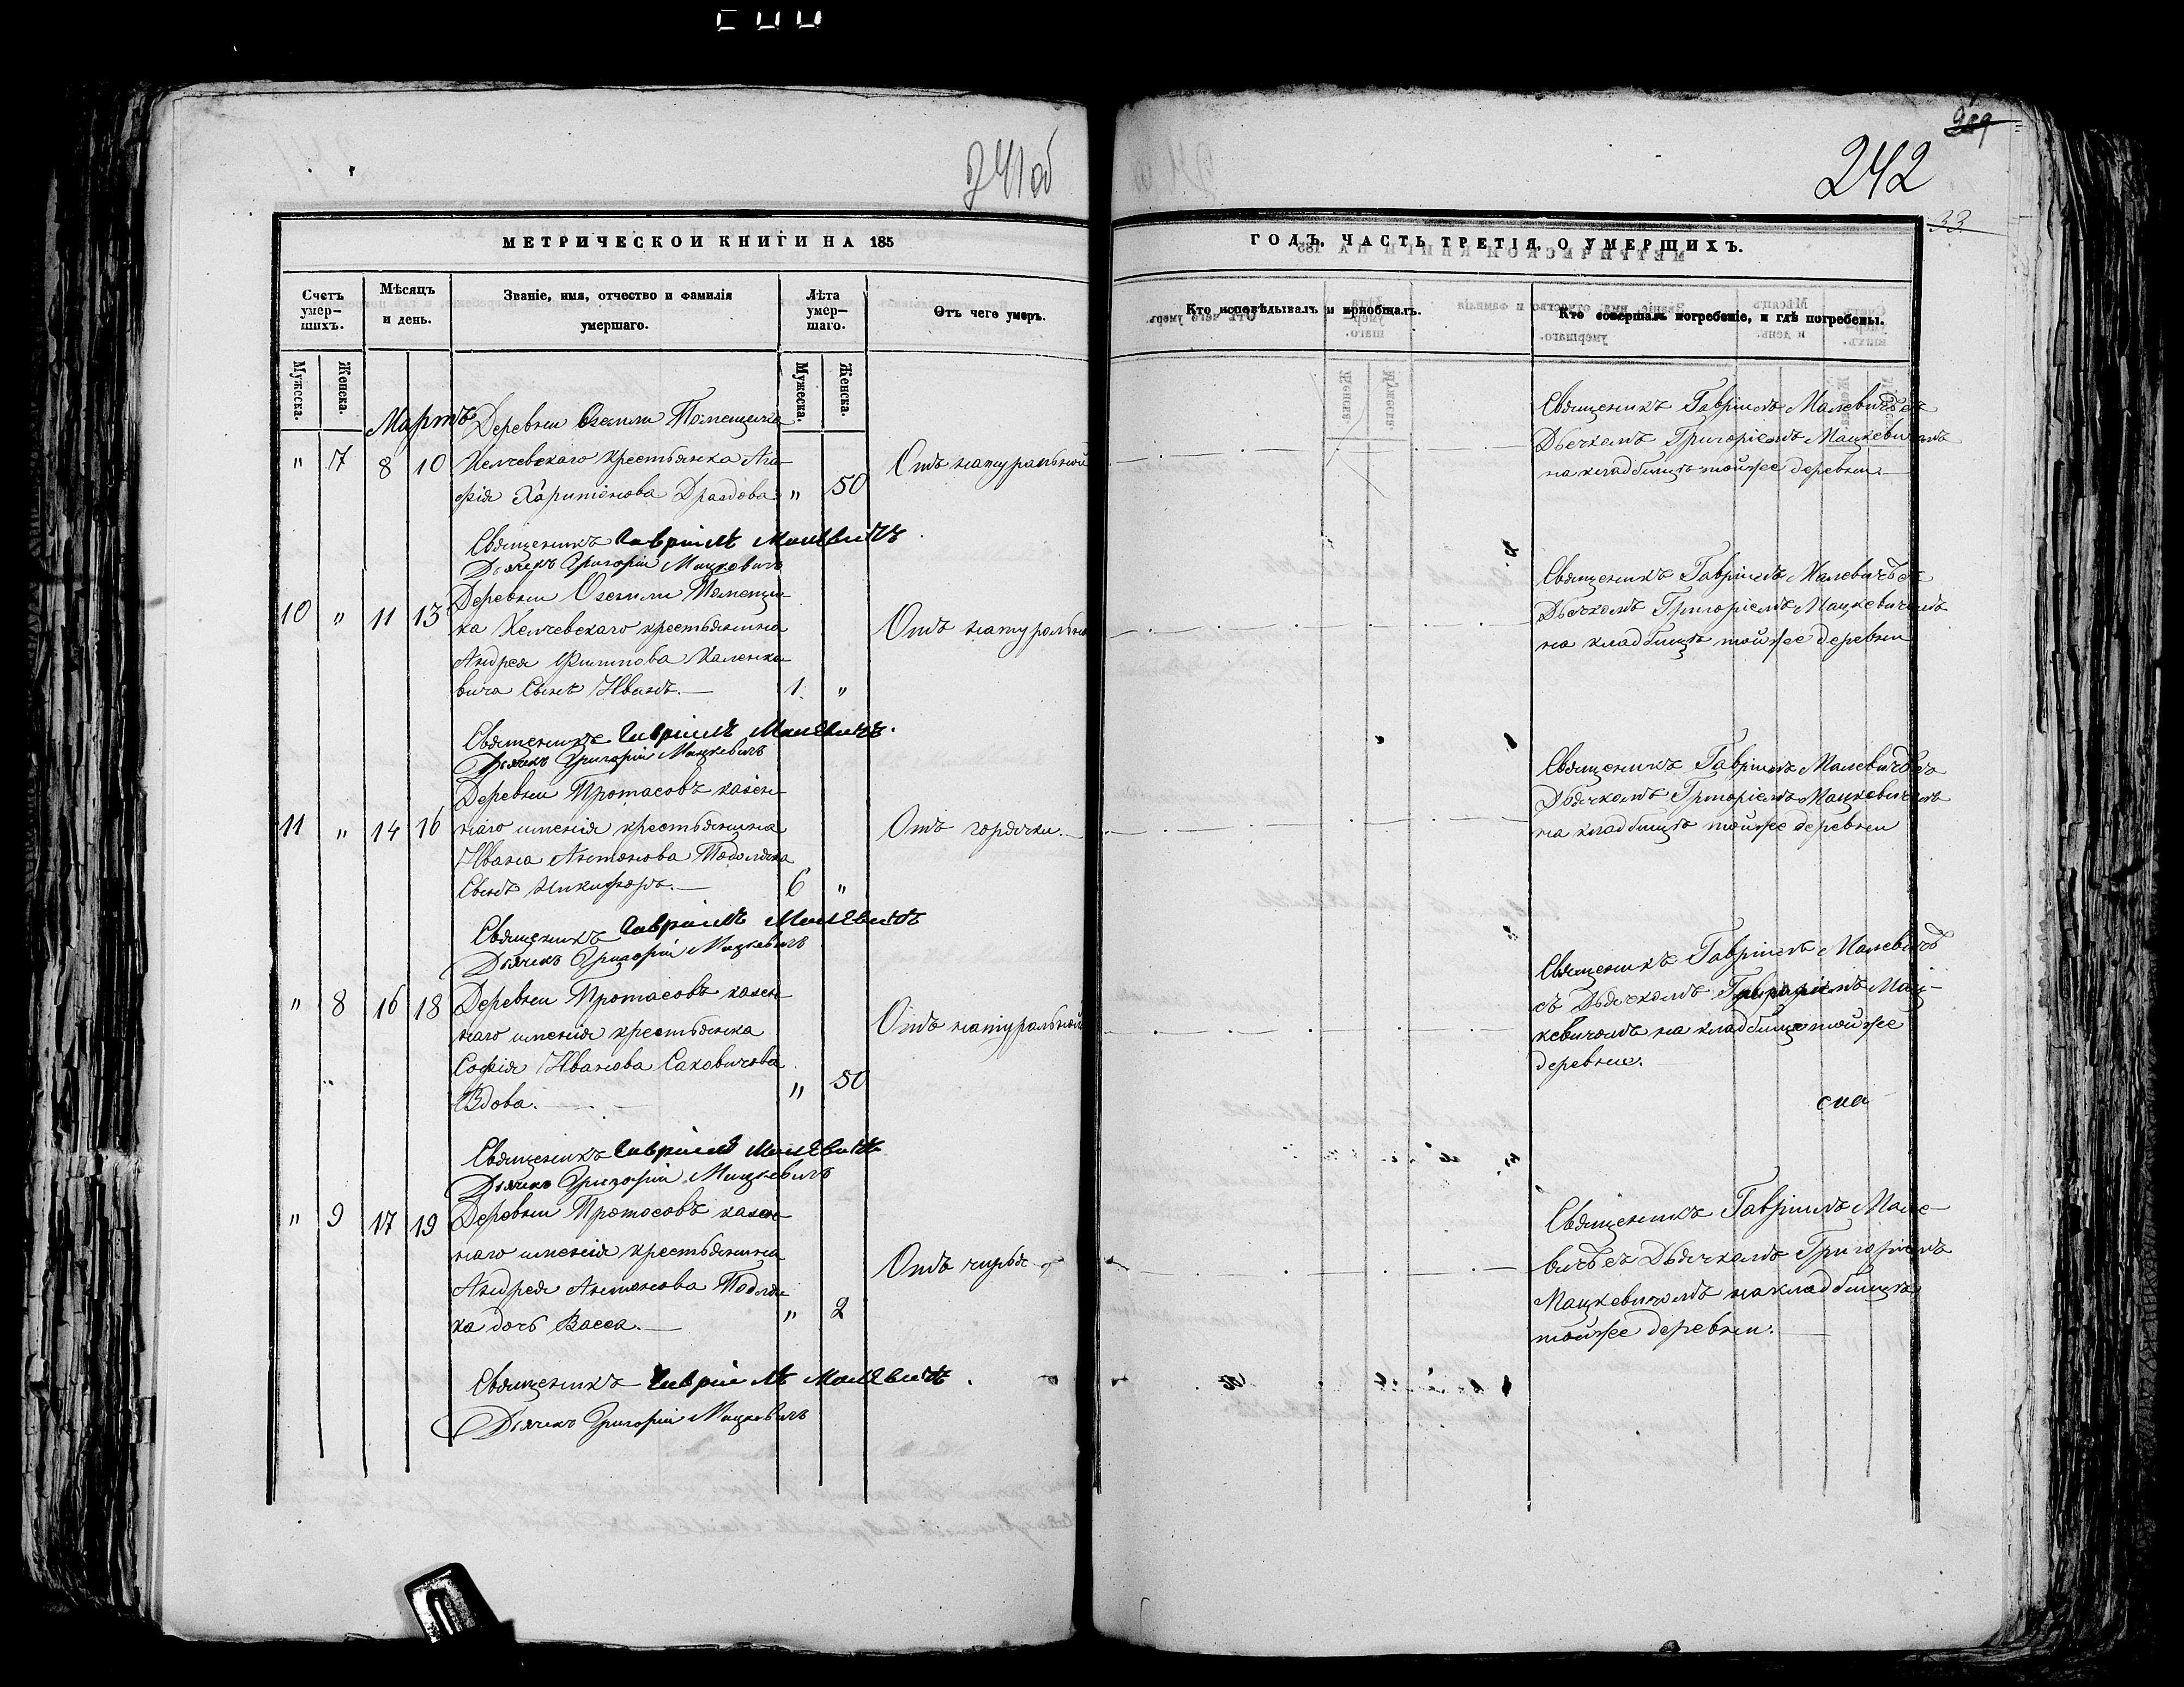 241 об
242
33
МЕТРИЧЕСКОЙ КНИГИ НА 185
ГОДЪ, ЧАСТЬ ТРЕТІЯ, О УМЕРШИХЪ.
Счетъ умер-
шихъ.
Мужеска.
Женска.
Мѣсяцъ
и день.
Званіе, имя, отчество и фамилія
умершаго.
Лѣта
умер-
шаго.
Мужеска.
Женска.
Отъ чего умеръ.
Кто исповѣдывалъ и пріобщалъ.
Кто совершалъ погребеніе, и гдѣ погребены.
Мартъ
Деревни Оземли Помещика
" 7 8 10 Келчевскаго крестьянка Ага-
фія Харитонова Драздова " 50
Отъ натуральной
Священикъ Гавріилъ Малевичъ съ
Дьячкомъ Григоріемъ Мацкевичемъ
на кладбищѣ тойже деревни.
Священикъ Гавріилъ Малевичъ
Дьячекъ Григорій Мацкевичъ
Деревни Оземли Помещи-
10 " 11 13 ка Келчевскаго крестьянина
Андрея Филипова Каленко-
вича Сынъ Иванъ. 1. "
Отъ натурально
Священикъ Гавріилъ Малевичъ съ
Дьячкомъ Григоріемъ Мацкевичомъ
на кладбищѣ тойже деревни
Священикъ Гавріилъ Малевичъ.
Дьячекъ Григорій Мацкевичъ
Деревни Протасовъ казен-
11 " 14 16 наго имения крестьянина
Ивана Антонова Подоляка
Сынъ Никифоръ. 6 "
Отъ горячки.
Священикъ Гавріилъ Малевичъ съ
Дьячкомъ Григоріемъ Мацкевичемъ
на кладбищѣ тойже деревни
Священикъ Гавріилъ Малевичъ
Дьячекъ Григорій Мацкевичъ
" 8 16 18 Деревни Протасовъ казен-
наго имения крестьянка
Софія Иванова Саковичова
Вдова. " 50
Отъ натуральной
Священикъ Гавріилъ Малевичъ
съ Дьячкомъ Григоріемъ Мац-
кевичомъ на кладбище тойже
деревни.
Священикъ Гавріилъ Малевичъ
Дьячекъ Григорій Мацкевичъ
" 9 17 19 Деревни Протосовъ казен-
наго имения крестьянина
Андрея Антонова Подоля-
ка дочь Васса. " 2
Отъ чирья
Священикъ Гавріилъ Мале-
вичъ съ Дьячкомъ Григоріемъ
Мацкевичомъ на кладбищѣ
тойже деревни.
Священикъ Гавріилъ Малевичъ.
Дьячекъ Григорій Мацкевичъ